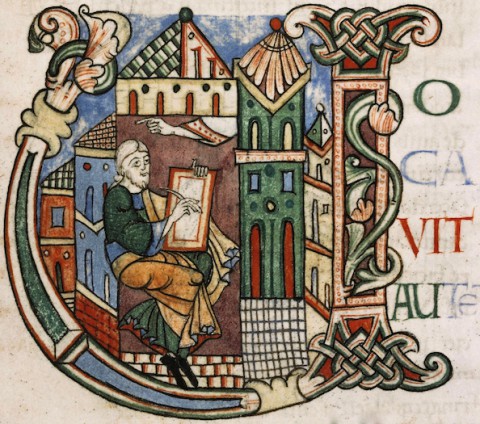 UO
CA
VIT
AUTE